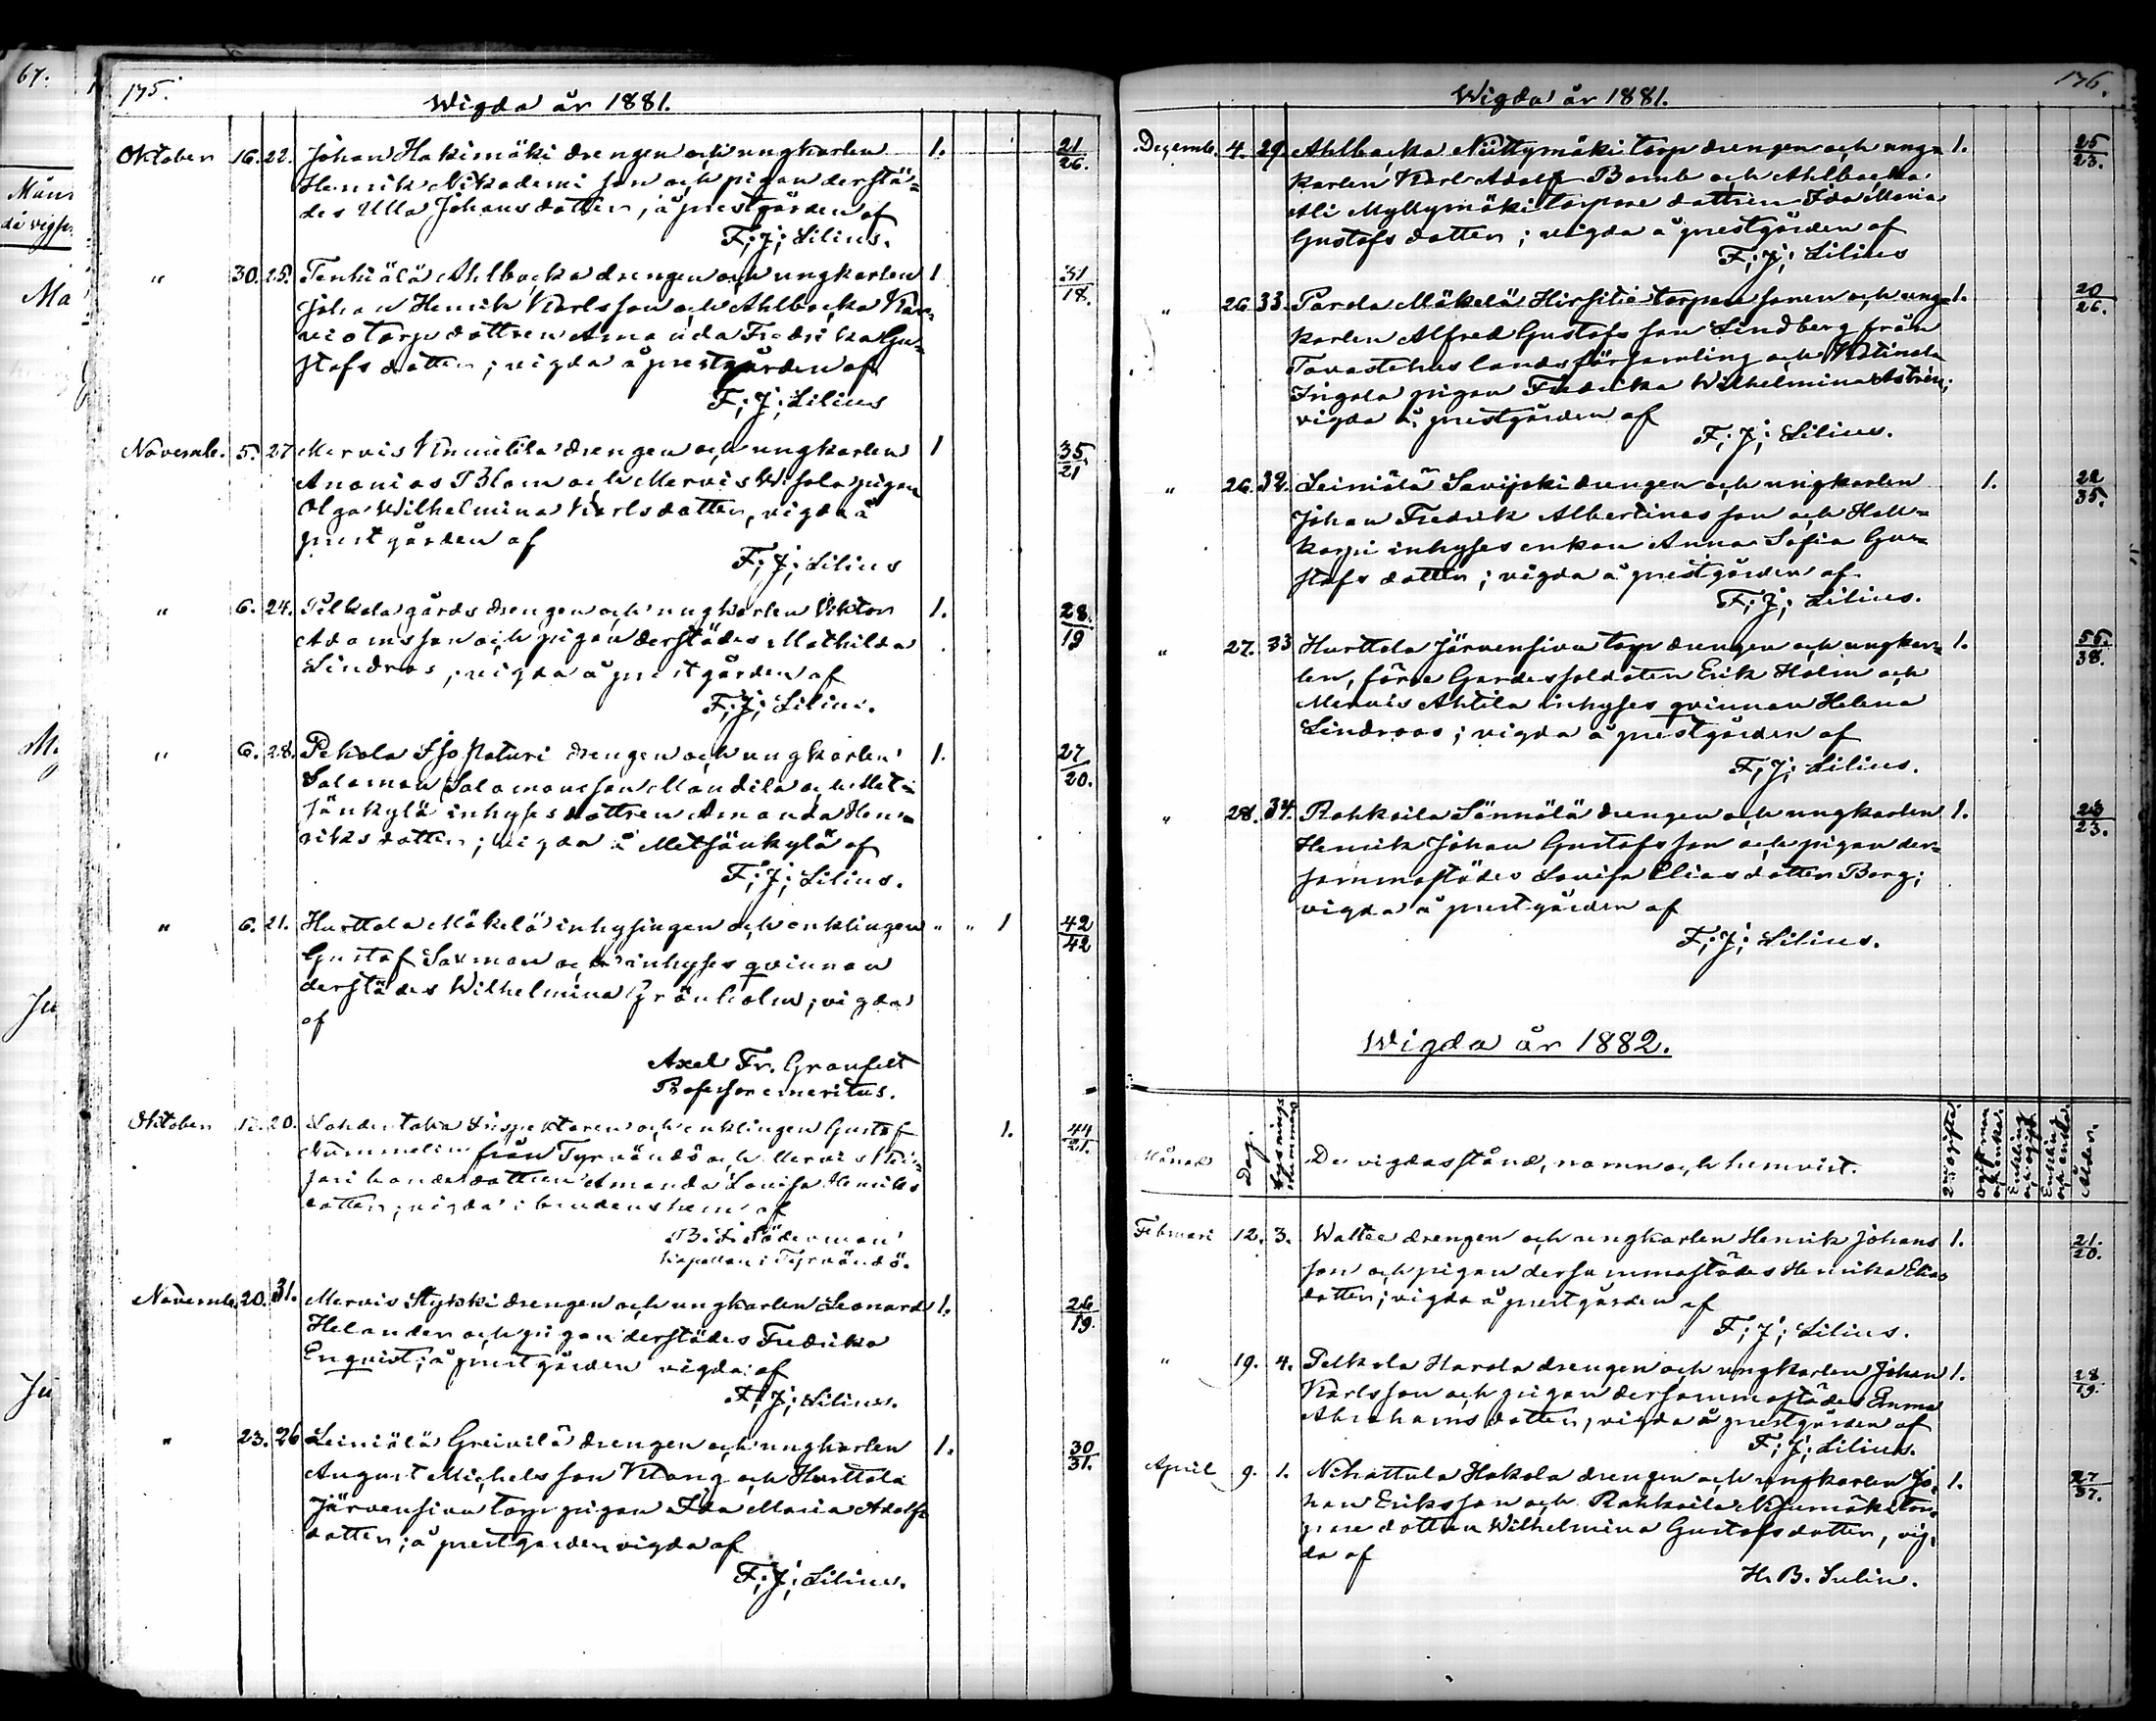 67.
175.
Wigda år 1881.
Oktober 16. 22. Johan Hakimäki drengen och ungkarlen 1. 21/26.
Henrik Nikodemi son och pigan derstä=
des Ulla Johansdotter, å prestgården af
F; J; Lilius.
" 30. 25. Tenhiälä Ahlbacka drengen och ungkarlen 1 31/18.
Johan Henrik Karlsson och Ahlbacka
torp dottren Amanda Fredrika Gu=
stafs dotter; vigda å prestgården af
F; J; Lilius
Novemb. 5. 27 Mervis drengen och ungkarlen 1 35/21
Ananias Blom och Mervis pigan
Olga Wilhelmina Karlsdotter, vigda å
prestgården af
F; J; Lilius
" 6. 24. Pelkola gårds drengen och ungkarlen Viktor 1. 28./19
Adamsson och pigan derstädes Mathilda
Lindroos, vigda å prestgården af
F; J; Lilius.
" 6. 28. Pekola drengen och ungkarlen 1. 27/20.
Salomon Salomonsson Mandila och Met=
sänkylä inhyses dottren Amanda Hen=
riks dotter; vigda å Metsänkylä af
F; J; Lilius.
" 6. 21. Hurttala Mäkelä inhysingen och enklingen " " 1 42/42
Gustaf Saxman och inhyses qvinnan
derstädes Wilhelmina Grönholm; vigda
af
Axel Fr. Granfelt
Professor emeritus.
Oktober 20. Inspektoren och enklingen Gustaf 1. 44/21.
Nummelin från Tyrvändö och Mervis
dottren Amanda Lovisa Henriks
dotter; vigda i brudens hem af
Söderman
kapellan i Tyrvändö.
Novemb. 20. 31. Mervis Stykki drengen och ungkarlen Leonard 1. 26/19.
Helander och pigan derstädes Fredrika
Enqvist; å prestgården vigda af
F; J; Lilius.
" 23. 26 Leiniälä Greivilä drengen och ungkarlen 1. 30/31.
August Michelsson Klang och Hurttala
Järvensivu torp pigan Ida Maria Adolfs
dotter; å prestgården vigda af
F; J; Lilius.
176.
Wigda år 1881.
Decemb. 4. 29. Ahlbacka Niittymäki torp drengen och ung= 1. 25/23.
karlen Karl Adolf Bomb och Ahlbacka
Ali Myllymäki torpare dottren Ida Maria
Gustafs dotter; vigda å prestgården af
F; J; Lilius
" 26. 33. Parola Mäkelä torpare sonen och ung= 1. 20/26.
karlen Alfred Gustafsson Lindberg från
Tavastehus landsförsamling och Katinala
pigan Fredrika Wilhelmina
vigda å prestgården af
F; J; Lilius.
" 26. 32. Leiniälä Savijoki drengen och ungkarlen 1. 22/35.
Johan Fredrik Albertinas son och
inhyses enkan Anna Sofia Gu=
stafs dotter; vigda å prestgården af
F; J; Lilius.
" 27. 33 Hurttala Järvensivu torp drengen och ungkar= 1. 55./38.
len, förre Gardessoldaten Erik Holm och
Mervis Ahtila inhyses qvinnan Helena
Lindroos; vigda å prestgården af
F; J; Lilius.
" 28. 34. Rahkoila Sännälä drengen och ungkarlen 1. 23/23.
Henrik Johan Gustafsson och pigan der=
sammastädes Lovisa Elias dotter Borg;
vigda å prestgården af
F; J; Lilius.
Wigda år 1882.
Månad Dag. Lysnings nummer De vigdas stånd, namn och hemvist. 2 ne ogifta. Ogift man och enka. Enkling och ogift. Enkling och enka. Ålder.
Februari 12. 3. Wattee drengen och ungkarlen Henrik Johans 1. 21./20.
son och pigan dersammastädes Henrika Elias
dotter; vigda å prestgården af
F; J; Lilius.
" 19. 4. Pelkola Harola drengen och ungkarlen Johan 1. 28/19.
Karlsson och pigan dersammastädes Emma
Abrahams dotter, vigda å prestgården af
F; J; Lilius.
April 9. 1. Nihattula Hakola drengen och ungkarlen Jo= 1. 27/37.
han Eriksson och Rahkoila tor=
pare dottren Wilhelmina Gustafs dotter, vig=
da af
H. B. Sulin.